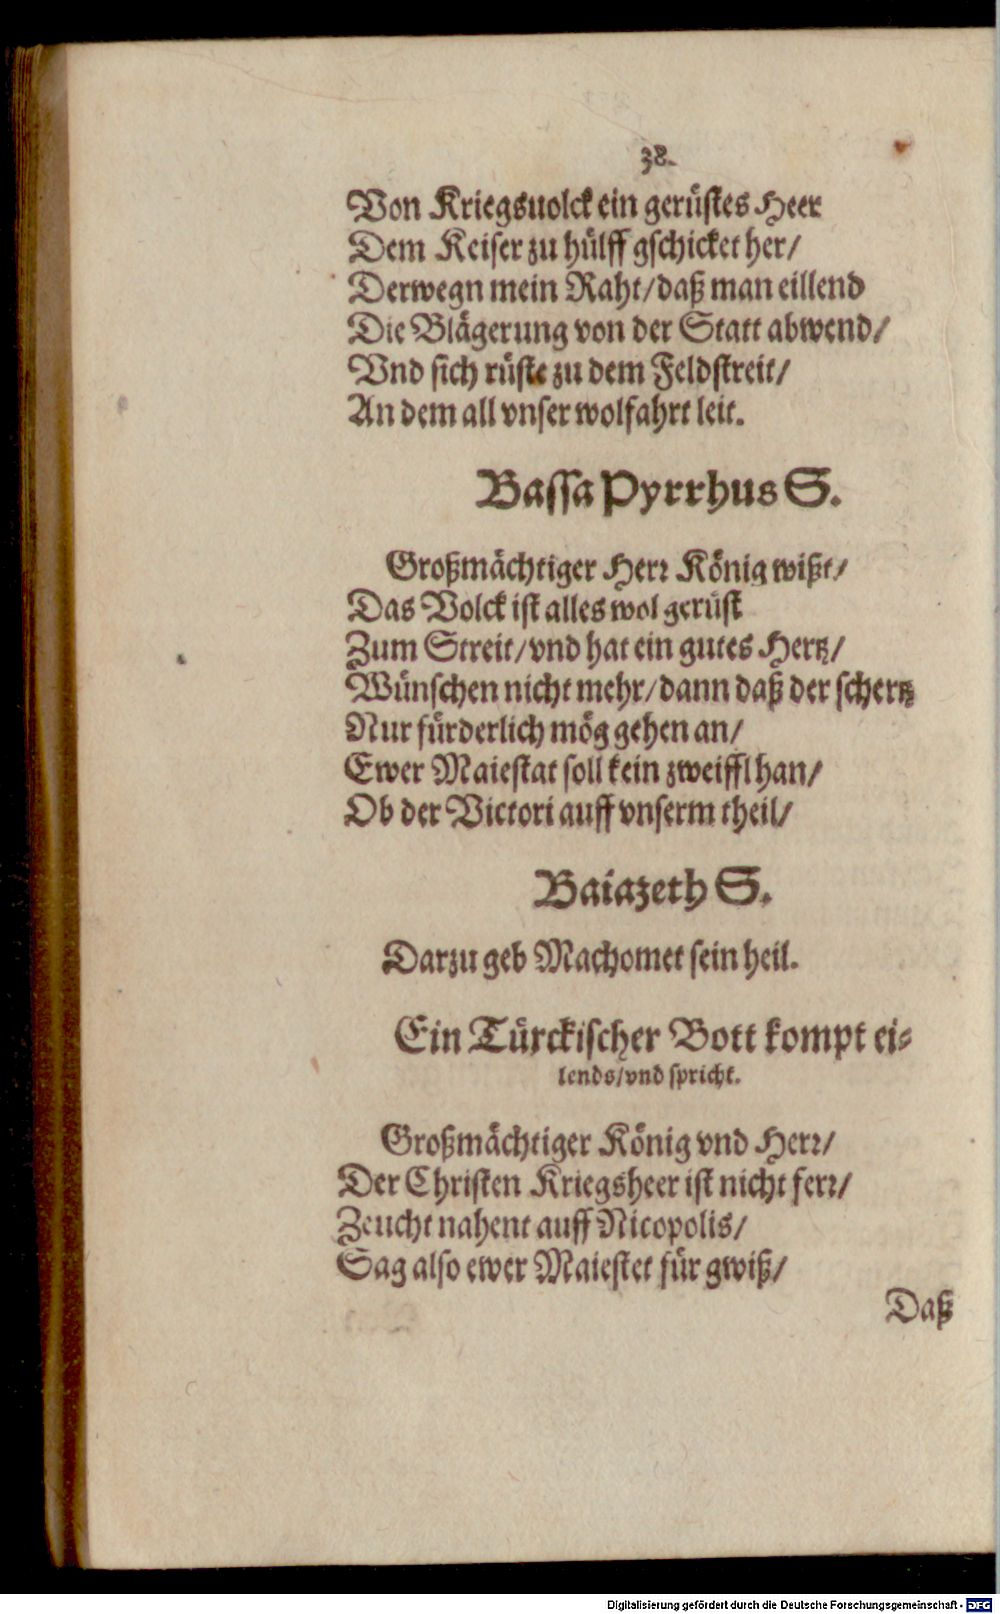 38.
Von Kriegsuolck ein gerüstes Heer
Dem Keiser zu hülff gschicket her/
Derwegn mein Raht/daß man eillend
Die Blägerung von der Statt abwend/
Vnd sich rüste zu dem Feldstreit/
An dem all vnser wolfahrt leit.
Bassa Pyrrhus S.
Großmächtiger Herr König wißt/
Das Volck ist alles wol gerüst
Zum Streit/vnd hat ein gutes Hertz/
Wünschen nicht mehr/dann daß der schertz
Nur fürderlich mög gehen an/
Ewer Maiestat soll kein zweiffl han/
Ob der Victori auff vnserm theil/
Baiazeth S.
Darzu geb Machomet sein heil.
Ein Türckischer Bott kompt ei-
lends/vnd spricht.
Großmächtiger König vnd Herr/
Der Christen Kriegsheer ist nicht ferr/
Zeucht nahent auff Nicopolis/
Sag also ewer Maiestet für gwiß/
Daß
Digitalisierung gefördert durch die Deutsche Forschungsgemeinschaft - DFG